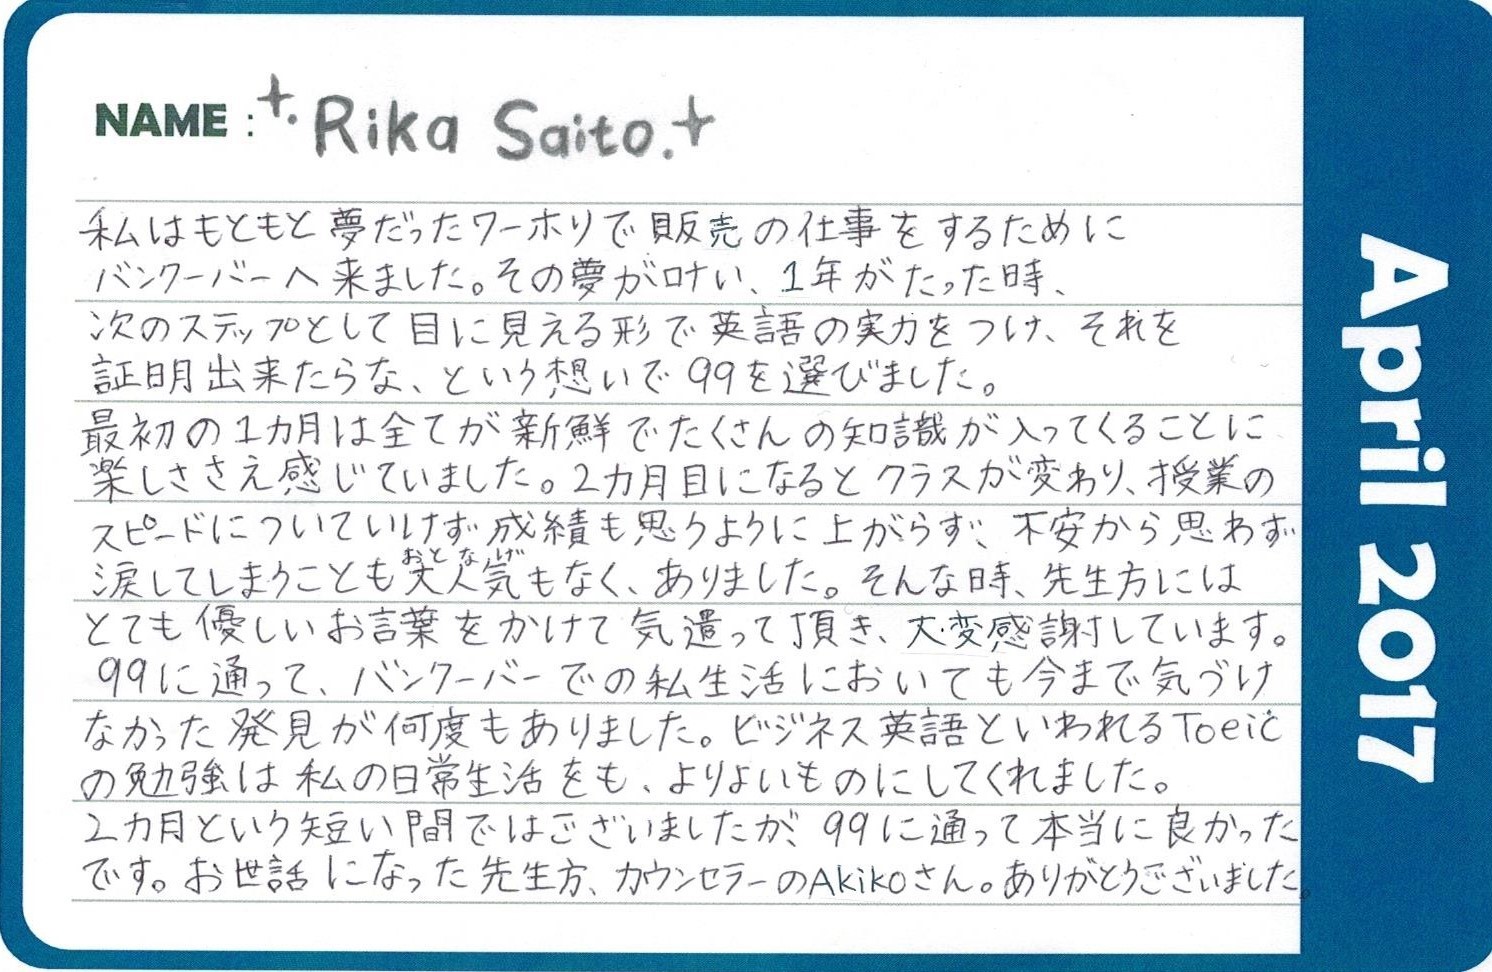 NAME : Rika Saito.
私はもともと夢だったワーホリで販売の仕事をするために
バンクーバーへ来ました。その夢が叶い、1年がたった時、
次のステップとして目に見える形で英語の実力をつけ、それを
証明出来たらな、という想いで99を選びました。
最初の1カ月は全てが新鮮でたくさんの知識が入ってくることに
楽しささえ感じていました。2カ月目になるとクラスが変わり、授業の
スピードについていけず成績も思うように上がらず、不安から思わず
おとなげ
涙してしまうことも大人気もなく、ありました。そんな時、先生方には
とても優しいお言葉をかけて気遣って頂き、大変感謝しています。
99に通って、バンクーバーでの私生活においても今まで気づけ
なかった発見が何度もありました。ビジネス英語といわれるToeic
の勉強は私の日常生活をも、よりよいものにしてくれました。
2カ月という短い間ではございましたが、99に通って本当に良かった
です。お世話になった先生方、カウンセラーのAkikoさん。ありがとうございました。
April 2017